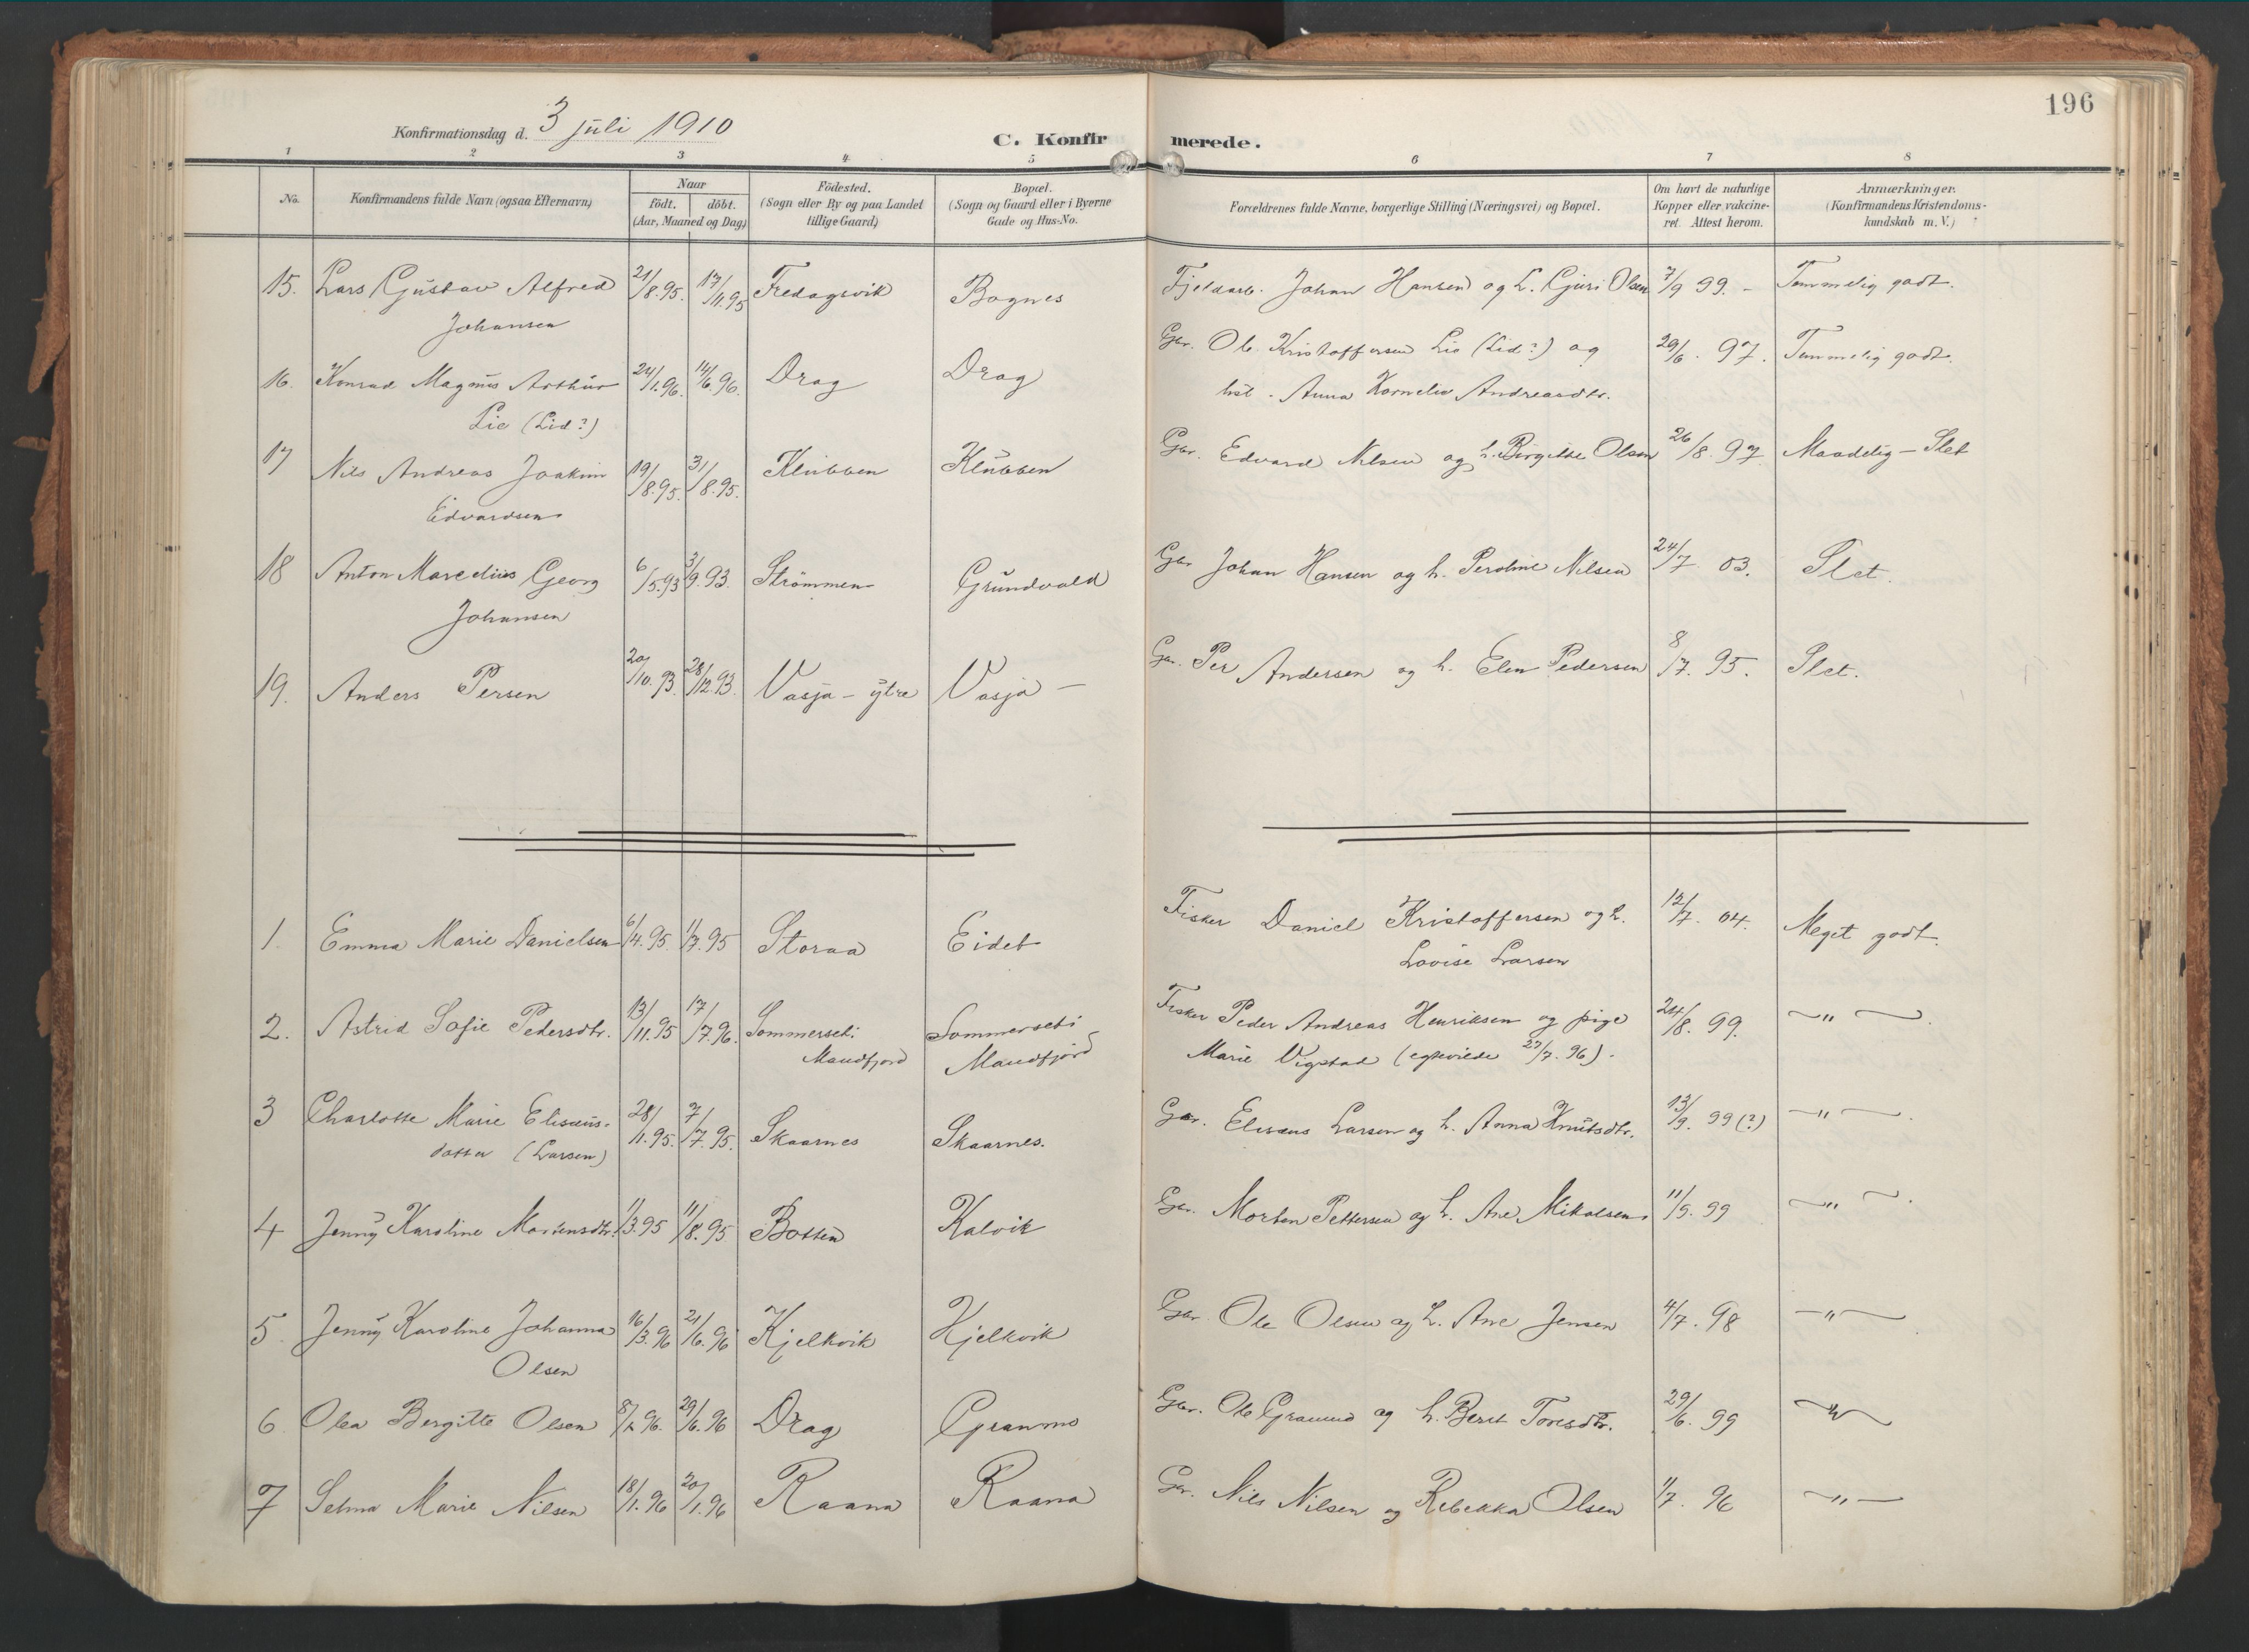 196
Konfirmationsdag d. 3 juli 1910
C. Konfirmerede.
1 2 3 4 5 6 7 8
No.
Konfirmandens fulde Navn (ogsaa Efternavn)
Naar
födt. döbt.
(Aar, Maaned og Dag)
Födested.
(Sogn eller By og paa Landet
tillige Gaard)
Bopæl.
(Sogn og Gaard eller i Byerne
Gade og Hus-No.
Forældrenes fulde Navne, borgerlige Stilling (Næringsvei) og Bopæl.
Om havt de naturlige
Kopper eller vakcine-
ret. Attest herom.
Anmærkninger.
(Konfirmandens Kristendoms-
kundskab m. V.)
15. Lars Gustav Alfred 21/8.95. 17/11.95 Fredagsvik Bognes Fjeldarb. Johan Hansen og h. Guri Olsen 7/9 99. - Temmelig godt.
Johansen
16. Konrad Magnus Arthur 24/1.96. 14/6.96. Drag Drag Gbr. Ole Kristoffersen Lie (Lid?) og 29/6. 97. Temmelig godt.
Lie (Lid?) hst. Anna Kornelia Andreasdtr.
17 Nils Andreas Joakim 19/8.95. 31/8.95. Klubben Klubben Gbr. Edvard Nilsen og h. Birgitte Olsen 26/8. 97 Maadelig - Slet
Edvardsen
18 Anton Marcelius Georg 6/5.93 3/9.93. Strömmen Grundvald Gbr Johan Hansen og h. Peroline Nilsen 24/7. 03. Slet.
Johansen
19. Anders Persen 20/10.93. 28/12.93. Vasja - ytre Vasja - Gbr. Per Andersen og h. Elen Pedersen 8/7. 95. Slet.
1. Emma Marie Danielsen 6/4.95. 1/7.95 Storaa Eidet Fisker Daniel Kristoffersen og h. 12/7. 04. Meget godt.
Lovise Larsen
2. Astrid Sofie Pedersdtr. 13/11.95 17/7.96. Sommerseti Sommerseti Fisker Peder Andreas Henriksen og pige 24/8. 99. - " -
Mandfjord Mandfjord Marie Vigstad (egteviede 27/7. 96).
3 Charlotte Marie Elisæus- 28/1.95. 7/7.95. Skaarnes Skaarnes. Gbr. Elisæus Larsen og h. Anna Knutsdtr. 13/9. 99 (?) - " -
datter (Larsen)
4 Jenny Karoline Mortensdtr. 1/3.95 11/8.95 Botten Kalvik Gbr. Morten Pettersen og h. Ane Mikalsen 11/9. 99 - " -
5. Jenny Karoline Johanna 16/3.96 21/6.96 Kjelkvik Kjelkvik Gbr. Ole Olsen og h. Ane Jensen 4/7. 98 - " -
Olsen
6 Olea Bergitte Olsen 29/6.96 Drag Granmo Gbr. Ole Granmo og h. Berit Toresdtr. 29/6. 99 - " -
7 Selma Marie Nilsen 18/1.96 20/1.96 Raana Raana Gbr. Nils Nilsen og Rebekka Olsen 1/7. 96 - " -